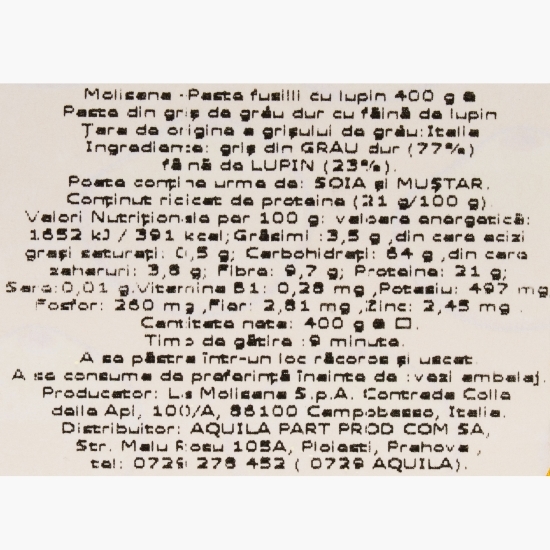 Molisana -Paste fusilli cu lupin 400 g e
Paste din griș de grâu dur cu făină de lupin
Țara de origine a grișului de grâu:Italia
Ingrediente: griș din GRÂU dur (77%)
făină de LUPIN (23%).
Poate conține urme de: SOIA și MUȘTAR.
Conținut ridicat de proteine (21 g/100 g).
Valori Nutriționale per 100 g: valoare energetică:
1652 kJ / 391 kcal;Grăsimi :3,5 g ,din care acizi
grași saturați: 0,5 g; Carbohidrați: 64 g ,din care
zaharuri: 3,8 g; Fibre: 9,7 g; Proteine: 21 g;
Sare:0,01 g.Vitamina B1: 0,28 mg ,Potasiu: 497 mg
Fosfor: 260 mg ,Fier: 2,81 mg ,Zinc: 2,45 mg .
Cantitate neta: 400 g e
Timp de gătire :9 minute.
A se păstra într-un loc răcoros și uscat.
A se consuma de preferință înainte de :vezi ambalaj.
Producator: La Molisana S.p.A. Contrada Colle
delle Api, 100/A, 86100 Campobasso, Italia.
Distribuitor: AQUILA PART PROD COM SA,
Str. Malu Rosu 105A, Ploiesti, Prahova ,
tel: 0729 278 452 ( 0729 AQUILA).